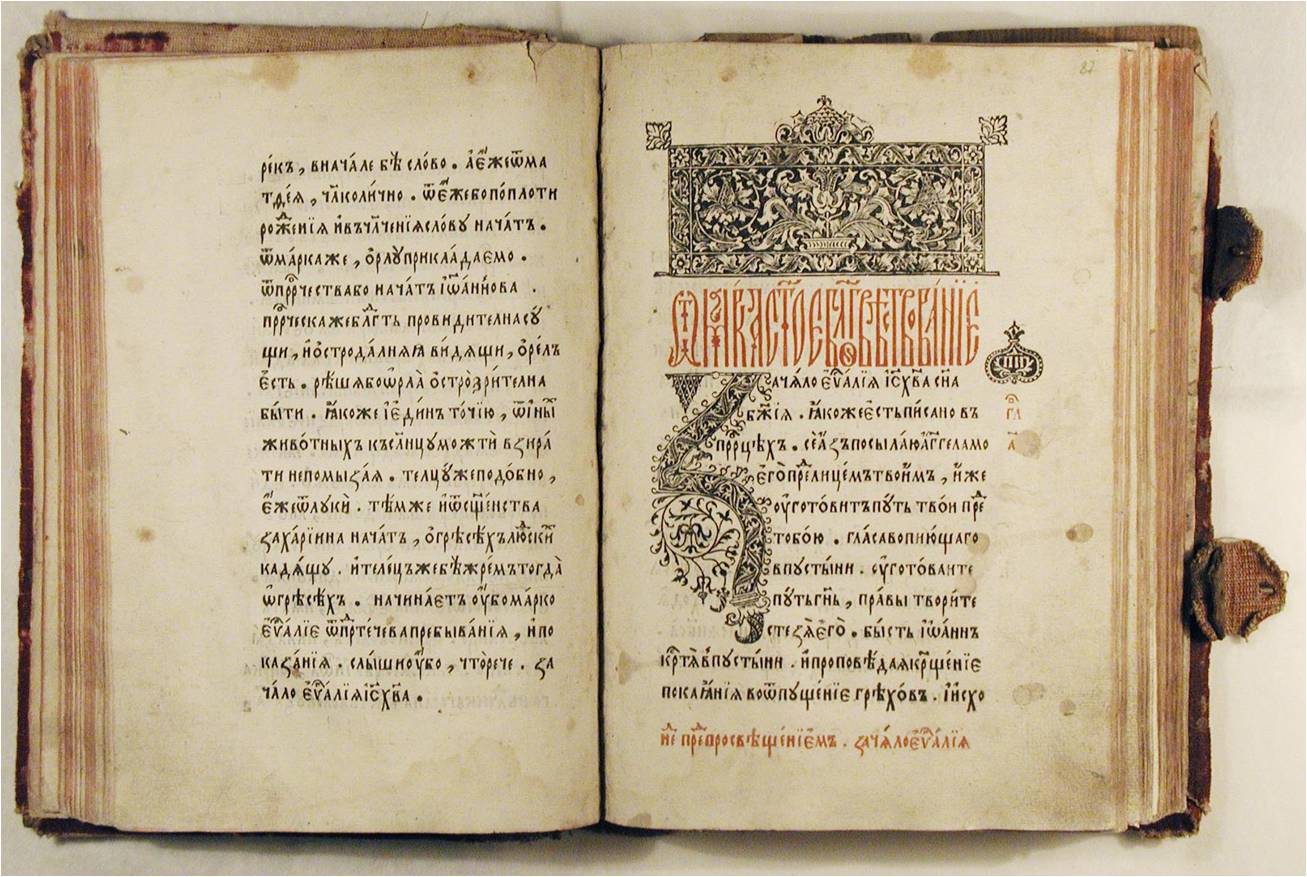 ре́къ, внача́ле бѣ̀ сло́во. а҆є҆́жеѿма
тѳе́я, чл҃колѝчно. ѿе҆́жебопопло́ти
рож҃енїя и҆въчл҃ченїясло́ву нача́тъ.
ѿма́ркаже, о҆рлу̀прикла́даемо.
ѿпрⷪ҇ро́чествабо нача́тъ і҆ѡа́ннова.
прⷪ҇ро́ческажеблгⷣть прови́дителнасу́
щи, и҆ѻ҆строда́лняꙗ ви́дящи, ѻ҆ре́лъ
є҆́сть. рѣ́шябоѡ҆рла̀ ѻ҆стро̀зри́телна
бы́ти. ꙗ҆́коже і҆є҆ди́нъ то́чїю, ѿи҆ны́х
живо́тныхъ късл҃нцумо́жтѝ взира́
ти непомыза́я. телцу́жеподо́бно,
є҆́жеѿлукѝ. тѣ́мже и҆ѿсщ҃е́нства
заха́рїина нача́тъ, ѻ҆грѣсѣ́хълюскѝх
кадя́щу. и҆теле́цъжебѣ̀жре́мътогда̀
ѡ҆грѣсѣ́хъ. начина́етъ оу҆́бома́рко
є҆ѵⷢ҇а́лїе ѿпрⷣте́чевапребыва́нїя, и҆по
каза́нїя. слы́шиоу҆́бо, что̀рече. за
ча́ло є҆ѵⷢ҇а́лїяі҆с҃х҃ва.
87
ѿма́рка ст҃о́е бл҃говѣствова́нїе
зача́ло є҆ѵⷢ҇а́лїя і҆с҃х҃ва сн҃а
бж҃їя. ꙗ҆́коже є҆́сть пи́сано въ
прⷪ҇рцѣхъ. се́ а҆́зъ посыла́ю а҆́гг҃ела мо
є҆го̀ прⷣелице́мъ твои́мъ, и҆́же
оу҆гото́витъ пу́ть тво́и прⷣе
тобо́ю. гла́съ вопию́щаго
впусты́ни. оу҆гото́ваите
пу́ть гн҃ь, пра́вы твори́те
стезя̀ є҆го̀. бы́сть і҆ѡа́ннъ
крⷭ҇тя̀ впусты́ни. и҆проповѣ́дая крⷳ҇ще́нїе
покаꙗ́нїя воѿпуще́нїе грѣхо́въ. и҆и҆схо
гл҃
а҃
нⷣе прⷣе просвѣще́нїемъ. зача́ло є҆ѵⷢ҇а́лїя